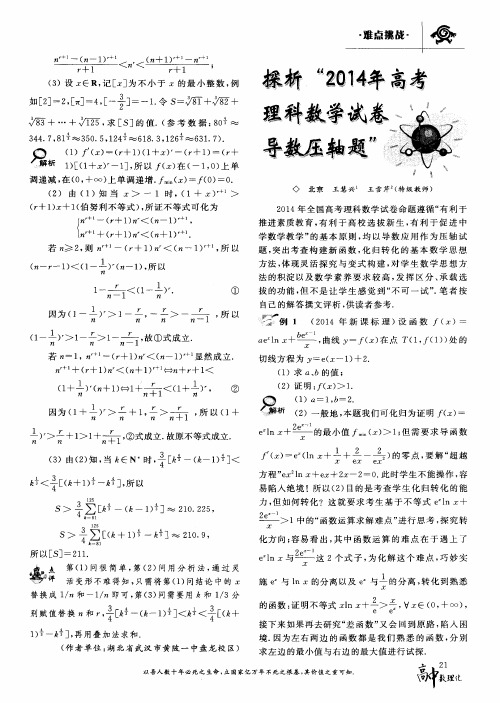 ·难点挑战·
(n^{r+1}-(n-1)^{r+1})/(r+1)<n^r<((n+1)^{r+1}-n^{r+1})/(r+1);
(3) 设 x∈R,记[x]为不小于 x 的最小整数,例
如[2]=2,[π]=4,[-3/2]=-1.令 S=∛81+∛82+
∛83+…+∛125,求[S]的值.(参考数据:80^{4/3}≈
344.7,81^{4/3}≈350.5,124^{4/3}≈618.3,126^{4/3}≈631.7).
解析 (1) f′(x)=(r+1)(1+x)^r-(r+1)=(r+
1)[(1+x)^r-1],所以 f(x)在(-1,0)上单
调递减,在(0,+∞)上单调递增.f_min(x)=f(0)=0.
(2) 由(1)知当 x>-1 时,(1+x)^{r+1}>
(r+1)x+1(伯努利不等式),所证不等式可化为
n^{r+1}-(r+1)n^r<(n-1)^{r+1},
n^{r+1}+(r+1)n^r<(n+1)^{r+1}.
若 n≥2,则 n^{r+1}-(r+1)n^r<(n-1)^{r+1},所以
(n-r-1)<(1-1/n)^r(n-1),所以
1-r/(n-1)<(1-1/n)^r. ①
因为(1-1/n)^r>1-r/n,-r/n>-r/(n-1),所以
(1-1/n)^r>1-r/n>1-r/(n-1),故①式成立.
若 n=1,n^{r+1}-(r+1)n^r<(n-1)^{r+1}显然成立.
n^{r+1}+(r+1)n^r<(n+1)^{r+1}⇔n+r+1<
(1+1/n)^r(n+1)⇔1+r/(n+1)<(1+1/n)^r, ②
因为(1+1/n)^r>r/n+1,r/n>r/(n+1),所以(1+
1/n)^r>r/n+1>1+r/(n+1),②式成立.故原不等式成立.
(3)由(2)知,当 k∈N*时,3/4[k^{4/3}-(k-1)^{4/3}]<
k^{1/3}<3/4[(k+1)^{4/3}-k^{4/3}],所以
S>3/4∑_{k=81}^{125}[k^{4/3}-(k-1)^{4/3}]≈210.225,
S>3/4∑_{k=81}^{125}[(k+1)^{4/3}-k^{4/3}]≈210.9,
所以[S]=211.
点评 第(1)问很简单,第(2)问用分析法,通过灵
活变形不难得知,只需将第(1)问结论中的 x
替换成 1/n 和-1/n 即可,第(3)问需要用 k 和 1/3 分
别赋值替换 n 和 r,3/4[k^{4/3}-(k-1)^{4/3}]<k^{1/3}<3/4[(k+
1)^{4/3}-k^{4/3}],再用叠加法求和.
(作者单位:湖北省武汉市黄陂一中盘龙校区)
探析“2014年高考
理科数学试卷
导数压轴题”
◇ 北京 王慧兴 王雪芹(特级教师)
2014 年全国高考理科数学试卷命题遵循“有利于
推进素质教育,有利于高校选拔新生,有利于促进中
学数学教学”的基本原则,均以导数应用作为压轴试
题,突出考查构建新函数,化归转化的基本数学思想
方法,体现灵活探究与变式构建,对学生数学思想方
法的积淀以及数学素养要求较高,发挥区分、承载选
拔的功能,但不是让学生感觉到“不可一试”.笔者按
自己的解答撰文评析,供读者参考.
例 1 (2014 年新课标理)设函数 f(x)=
ae^x ln x+be^{x-1}/x,曲线 y=f(x)在点 T(1,f(1))处的
切线方程为 y=e(x-1)+2.
(1) 求 a、b 的值;
(2) 证明:f(x)>1.
解析 (1) a=1,b=2.
(2) 一般地,本题我们可化归为证明 f(x)=
e^x ln x+2e^{x-1}/x 的最小值 f_min(x)>1;但需要求导函数
f′(x)=e^x(ln x+1/x+2/ex-2/ex²)的零点,要解“超越
方程”ex² ln x+ex+2x-2=0.此时学生不能操作,容
易陷入绝境!所以(2)目的是考查学生化归转化的能
力,但如何转化?这就要求考生基于不等式 e^x ln x+
2e^{x-1}/x>1 中的“函数运算求解难点”进行思考,探究转
化方向;容易看出,其中函数运算的难点在于遇上了
e^x ln x 与 2e^{x-1}/x 这 2 个式子,为化解这个难点,巧妙实
施 e^x 与 ln x 的分离以及 e^x 与 1/x 的分离,转化到熟悉
的函数:证明不等式 xln x+2/e>x/e^x,∀x∈(0,+∞),
接下来如果再去研究“差函数”又会回到原路,陷入困
境.因为左右两边的函数都是我们熟悉的函数,分别
求左边的最小值与右边的最大值进行试探.
以吾人数十年必死之生命,立国家亿万年不死之根基,其价值之重可知.
21
高中数理化